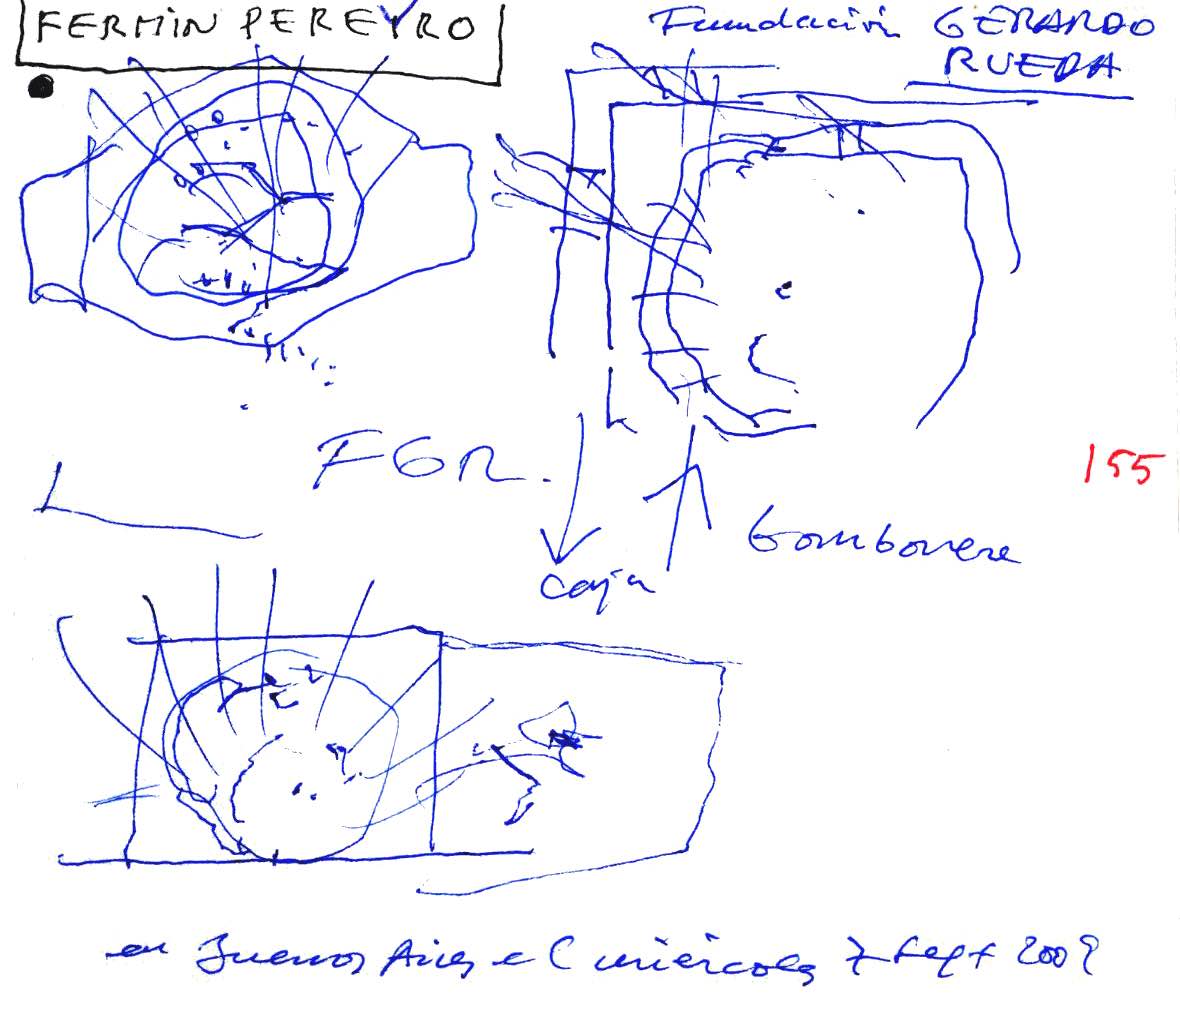 FERMIN PEREYRO
Fundación GERARDO
RUEDA
FGR.
155
Bombonera
caja
en Buenos Aires el miércoles 7 Sept 2009